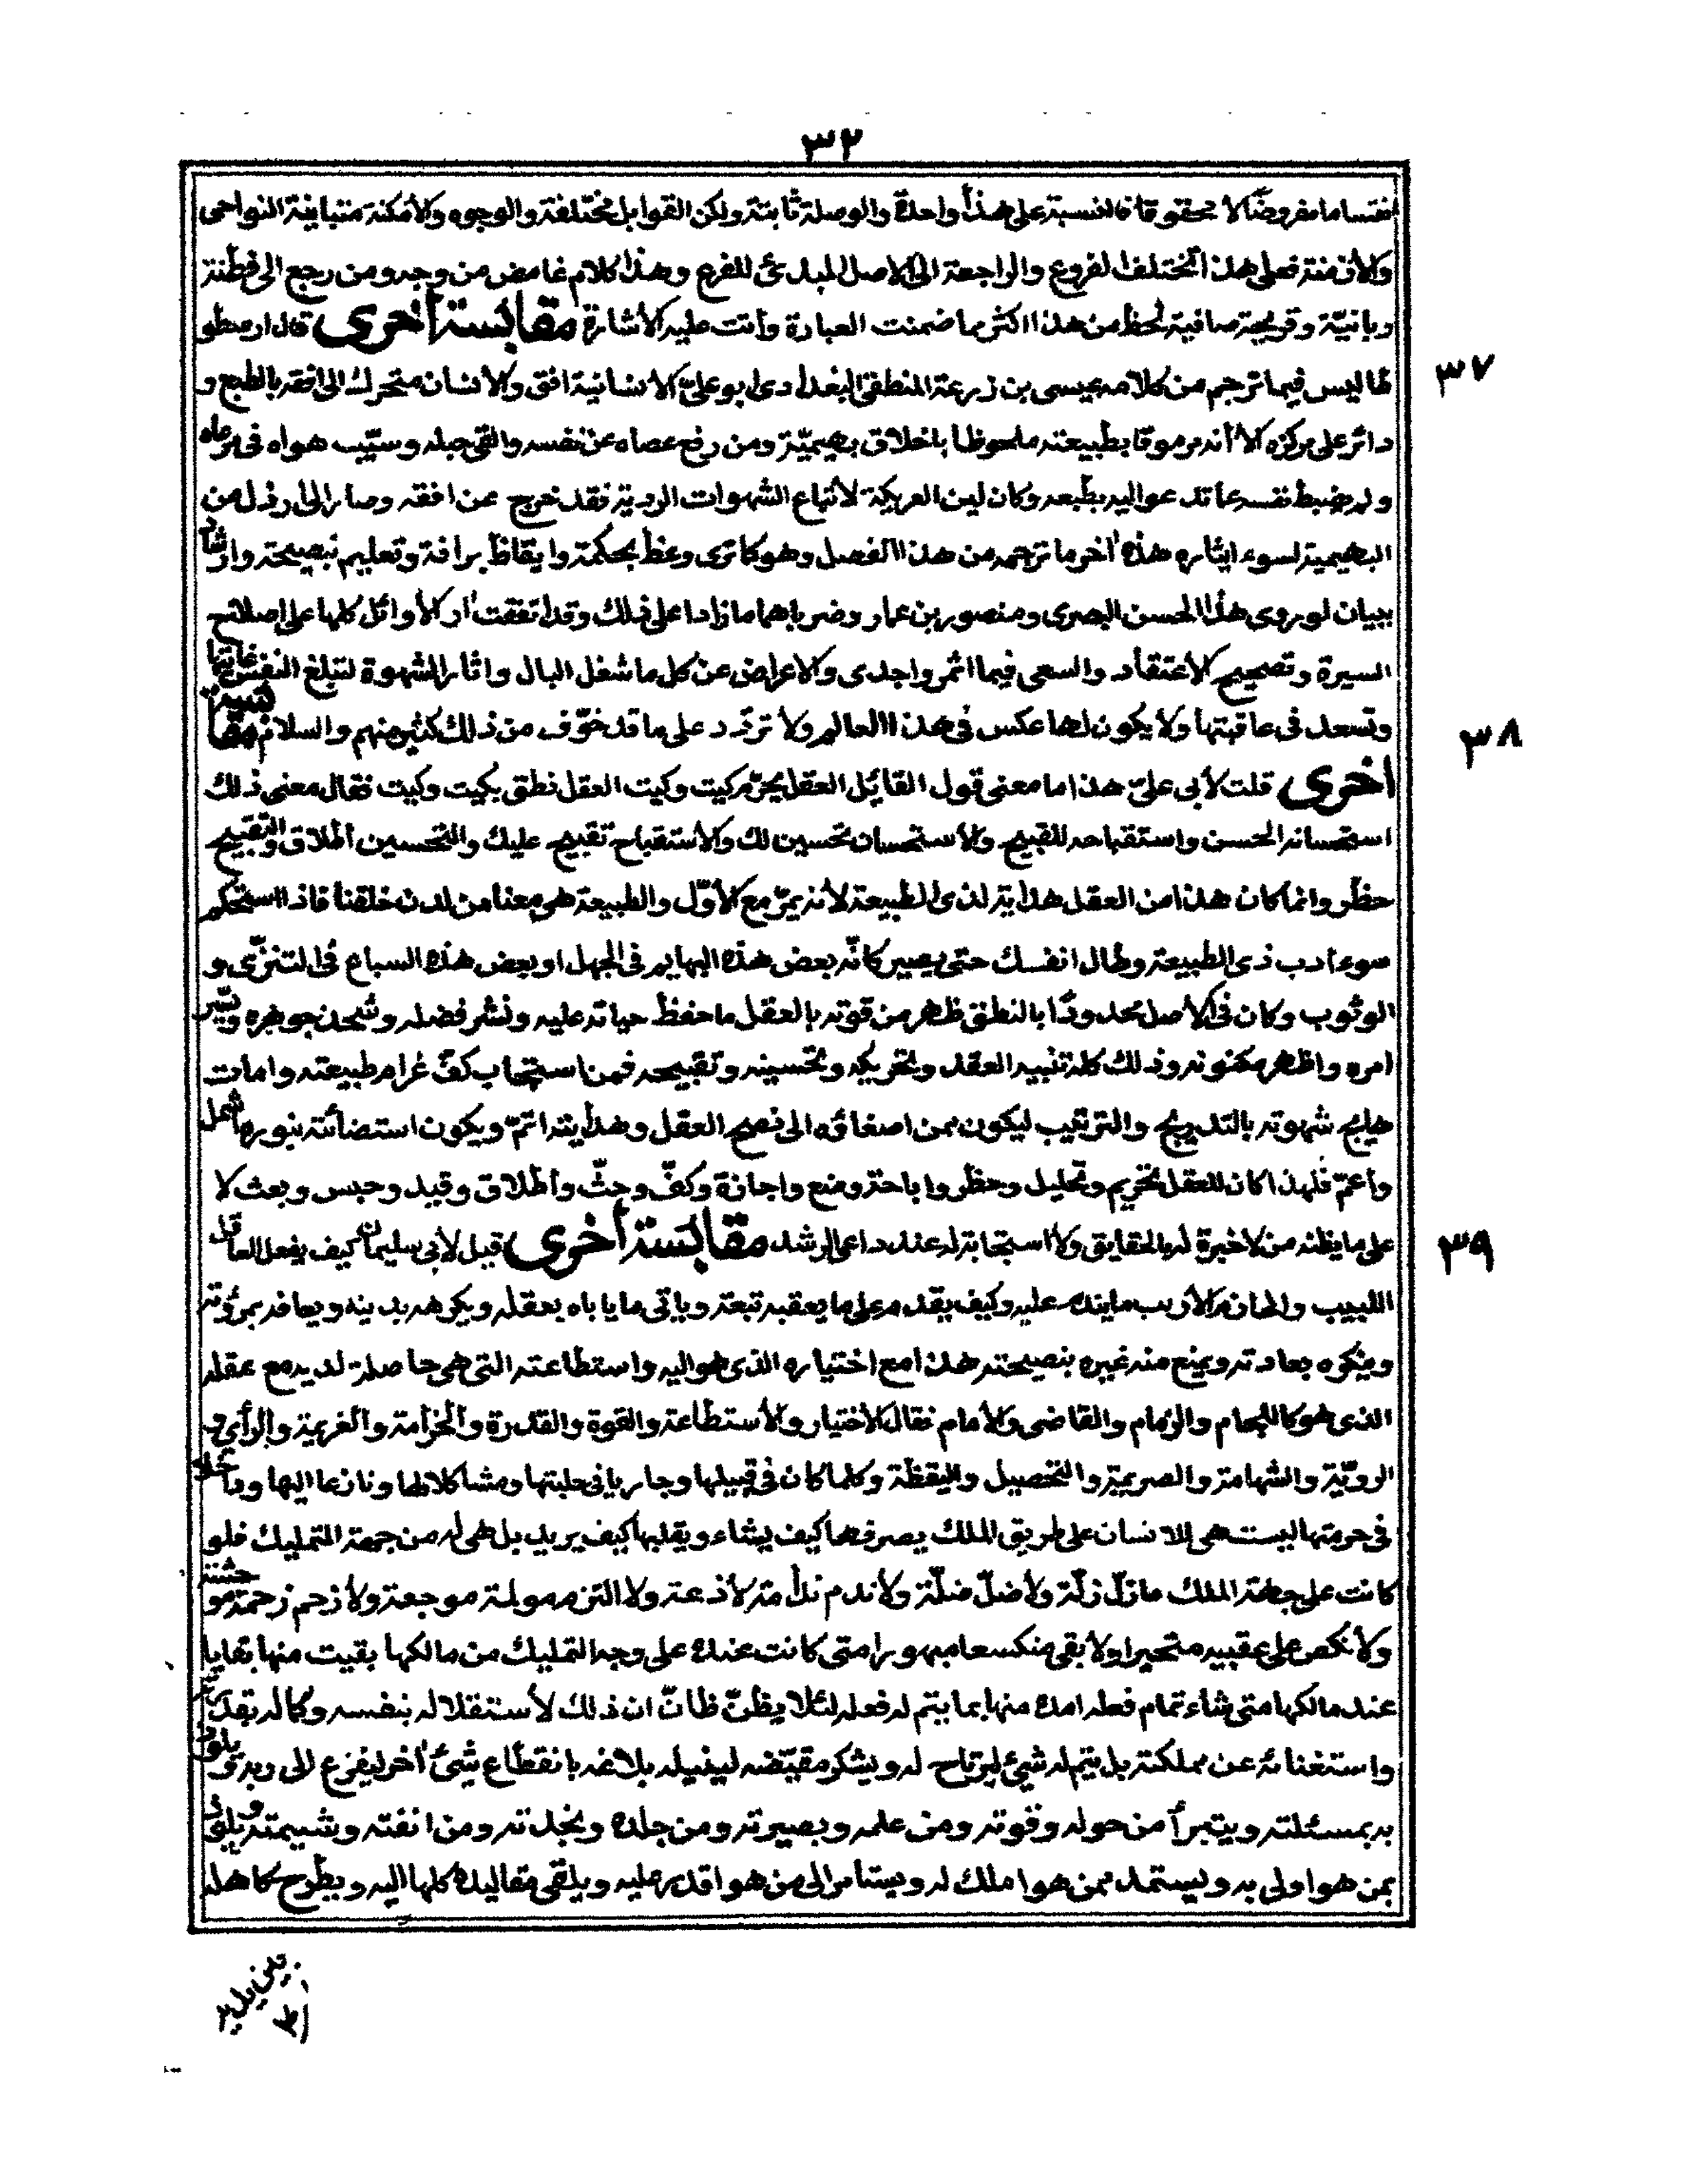 ٣٢
اقتساما مفروضًا لا محقوقا فالنسبة على هذا واحدة والوصلة ثابتة ولكن القوابل مختلفة والوجوه والأمكنة متباينة النواحي
والأزمنة فعلى هذا تختلف الفروع والراجعة الى الاصل المبدئ للفرع وهذا كلام غامض من وجه ومن رجع الى فطنة
ربانيّة وقريحة صافية لحظ من هذا اكثر مما ضمنت العبارة وأتت عليه الأشارة مقابسة أخرى قال ارسطو
طاليس فيما ترجم من كلامه عيسى بن زرعة المنطقي البغدادي ابو عليّ الأنسانية افق والأنسان متحرك الى افقه بالطبع و
٣٧
دائر على مركزه الا أنه مرموقا بطبيعته ملحوظا باخلاق بهيميّة ومن رفع عصاه عن نفسه والقى حبله وسيّب هواه في مرعاه
ولم يضبط نفسه عما تدعو اليه بطبعه وكان لين العريكة لأتباع الشهوات الردية فقد خرج عن افقه وصار الى ارذل من
البهيمية لسوء ايثاره هذه اخر ما ترجمه من هذا الفصل وهو كما ترى وعظ بحكمة وايقاظ برافة وتعليم بنصيحة وارشاد
ببيان لو روى هذا الحسن البصرى ومنصور بن عمار وضرباهما ما زادا على ذلك وقد اتفقت ار الأوائل كلها على اصلاح
السيرة وتصحيح الأعتقاد والسعى فيما اثمر واجدى والاعراض عن كل ما شغل البال واثار الشهوة لتبلغ النفس غايتها
وتسعد في عاقبتها ولا يكون لها عكس في هذا العالم ولا تردّد على ما قد خوّف من ذلك كثير منهم والسلام مقابسة
٣٨
أخرى قلت لأبي عليّ هذا ما معنى قول القائل العقل يحرّم كيت وكيت العقل نطق بكيت وكيت فقال معنى ذلك
استحسانه الحسن واستقباحه للقبيح والأستحسان تحسين لك والأستقباح تقبيح عليك والتحسين أطلاق والتقبيح
حظر وانما كان هذا من العقل هداية لذى الطبيعة لأنه يمرّ مع الأوّل والطبيعة هي معنا من لدن خلقنا فاذا استحكم
سوء ادب ذى الطبيعة وطال انفسك حتى يصير كأنّه بعض هذه البهايم في الجهل او بعض هذه السباع في التنزّى و
الوثوب وكان في الأصل محدودًا بالنطق ظهر من قوته بالعقل ما حفظ حياته عليه ونشر فضله وشحذ جوهره ويسّر
امره واظهر مكنونه وذلك كله تنبيه العقد وتحريكه وتحسينه وتقبيحه فمن استجاب كفّ غرام طبيعته وامات
هايج شهوته بالتدريج والترتيب ليكون ممن اصغاؤه الى نصح العقل وهدايته اتمّ ويكون استضائته بنوره اشمل
وأعمّ فلهذا كان للعقل تحريم وتحليل وحظر واباحة ومنع واجازة وكفّ وحثّ وأطلاق وقيد وحبس وبعث لا
على ما يظنه من لا خبرة له بالحقايق ولا استجابة له عند داعى الرشد مقابسة أخرى قيل لأبي سليمان كيف يفعل العاقل
٣٩
اللبيب والحازم الأريب ما يندم عليه وكيف يقدم على ما يعقبه تبعة وياتى ما ياباه بعقله ويكرهه بدينه ويعافه بمروّته
وينكره بعادته ويمنع منه غيره بنصيحته هذا مع اختياره الذى هو اليه واستطاعته التى هي حاصلة لديه مع عقله
الذى هو كاللجام والزمام والقاضى والأمام فقال الأختيار والأستطاعة والقوة والقدرة والحزامة والعزيمة والرأى و
الرويّة والشهامة والصريمة والتحصيل واليقظة وكلما كان في قبيلها وجاريا في حلبتها ومشاكلا لها ونازعا اليها وداخلا
في حرمتها ليست هي للانسان على طريق الملك يصرفها كيف يشاء ويقلبها كيف يريد بل هي له من جهة التمليك فلو
كانت على جهة الملك ما زلّ زلّة ولا ضلّ ضلّة ولا ندم ندامة لاذعة ولا التزم مولمة موجعة ولا زحم زحمة موحشة
ولا نكص على عقبيه متحيرا ولا بقى منكسعا مبهورا متى كانت عنده على وجه التمليك من مالكها بقيت منها بقايا
عند مالكها متى شاء تمام فعله امده منها بما يتم له فعله لئلا يظنّ ظانّ ان ذلك لأستقلاله بنفسه وكماله بقدرته
واستغنائه عن مملكته بل يتم له شيئ ليرتاح له ويشكر مقيّضه لينيله بلاغه بانقطاع شيئ آخر ليفزع الى ربه ويلوذ
به بمسئلته ويتبرأ من حوله وقوته ومن علمه وبصيرته ومن جلده ونجدته ومن انفته وشيمته ويلوذ
بمن هو اولى به ويستمد ممن هو املك له ويستأمر الى من هو اقدر عليه ويلقى مقاليده كلها اليه ويطرح كاهله